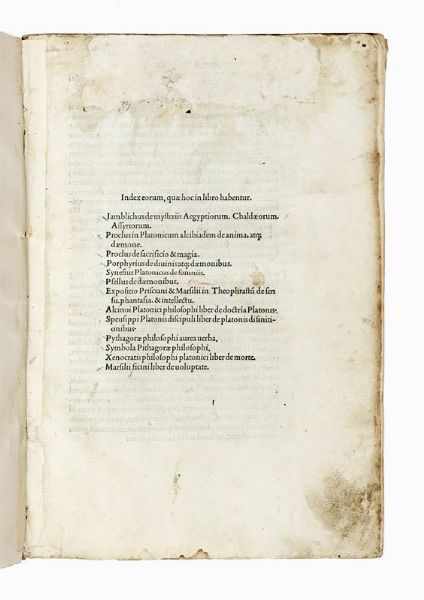 Index eorum, quæ hoc in libro habentur.
Iamblichus de mysteriis Aegyptiorum. Chaldæorum.
Assyriorum.
Proclus in Platonicum alcibiadem de anima, atq;
dæmone.
Proclus de sacrificio & magia.
Porphyrius de diuinis atq; dæmonibus.
Synesius Platonicus de somniis.
Psellus de dæmonibus.
Expositio Prisciani & Marsilii in Theophrastū de sen
su, phantasia, & intellectu.
Alcinoi Platonici philosophi liber de doctrīa Platonis.
Speusippi Platonis discipuli liber de platonis difiniti
onibus.
Pythagoræ philosophi aurea uerba.
Symbola Pithagoræ philosophi.
Xenocratis philosophi platonici liber de morte.
Marsilii ficini liber de uoluptate.